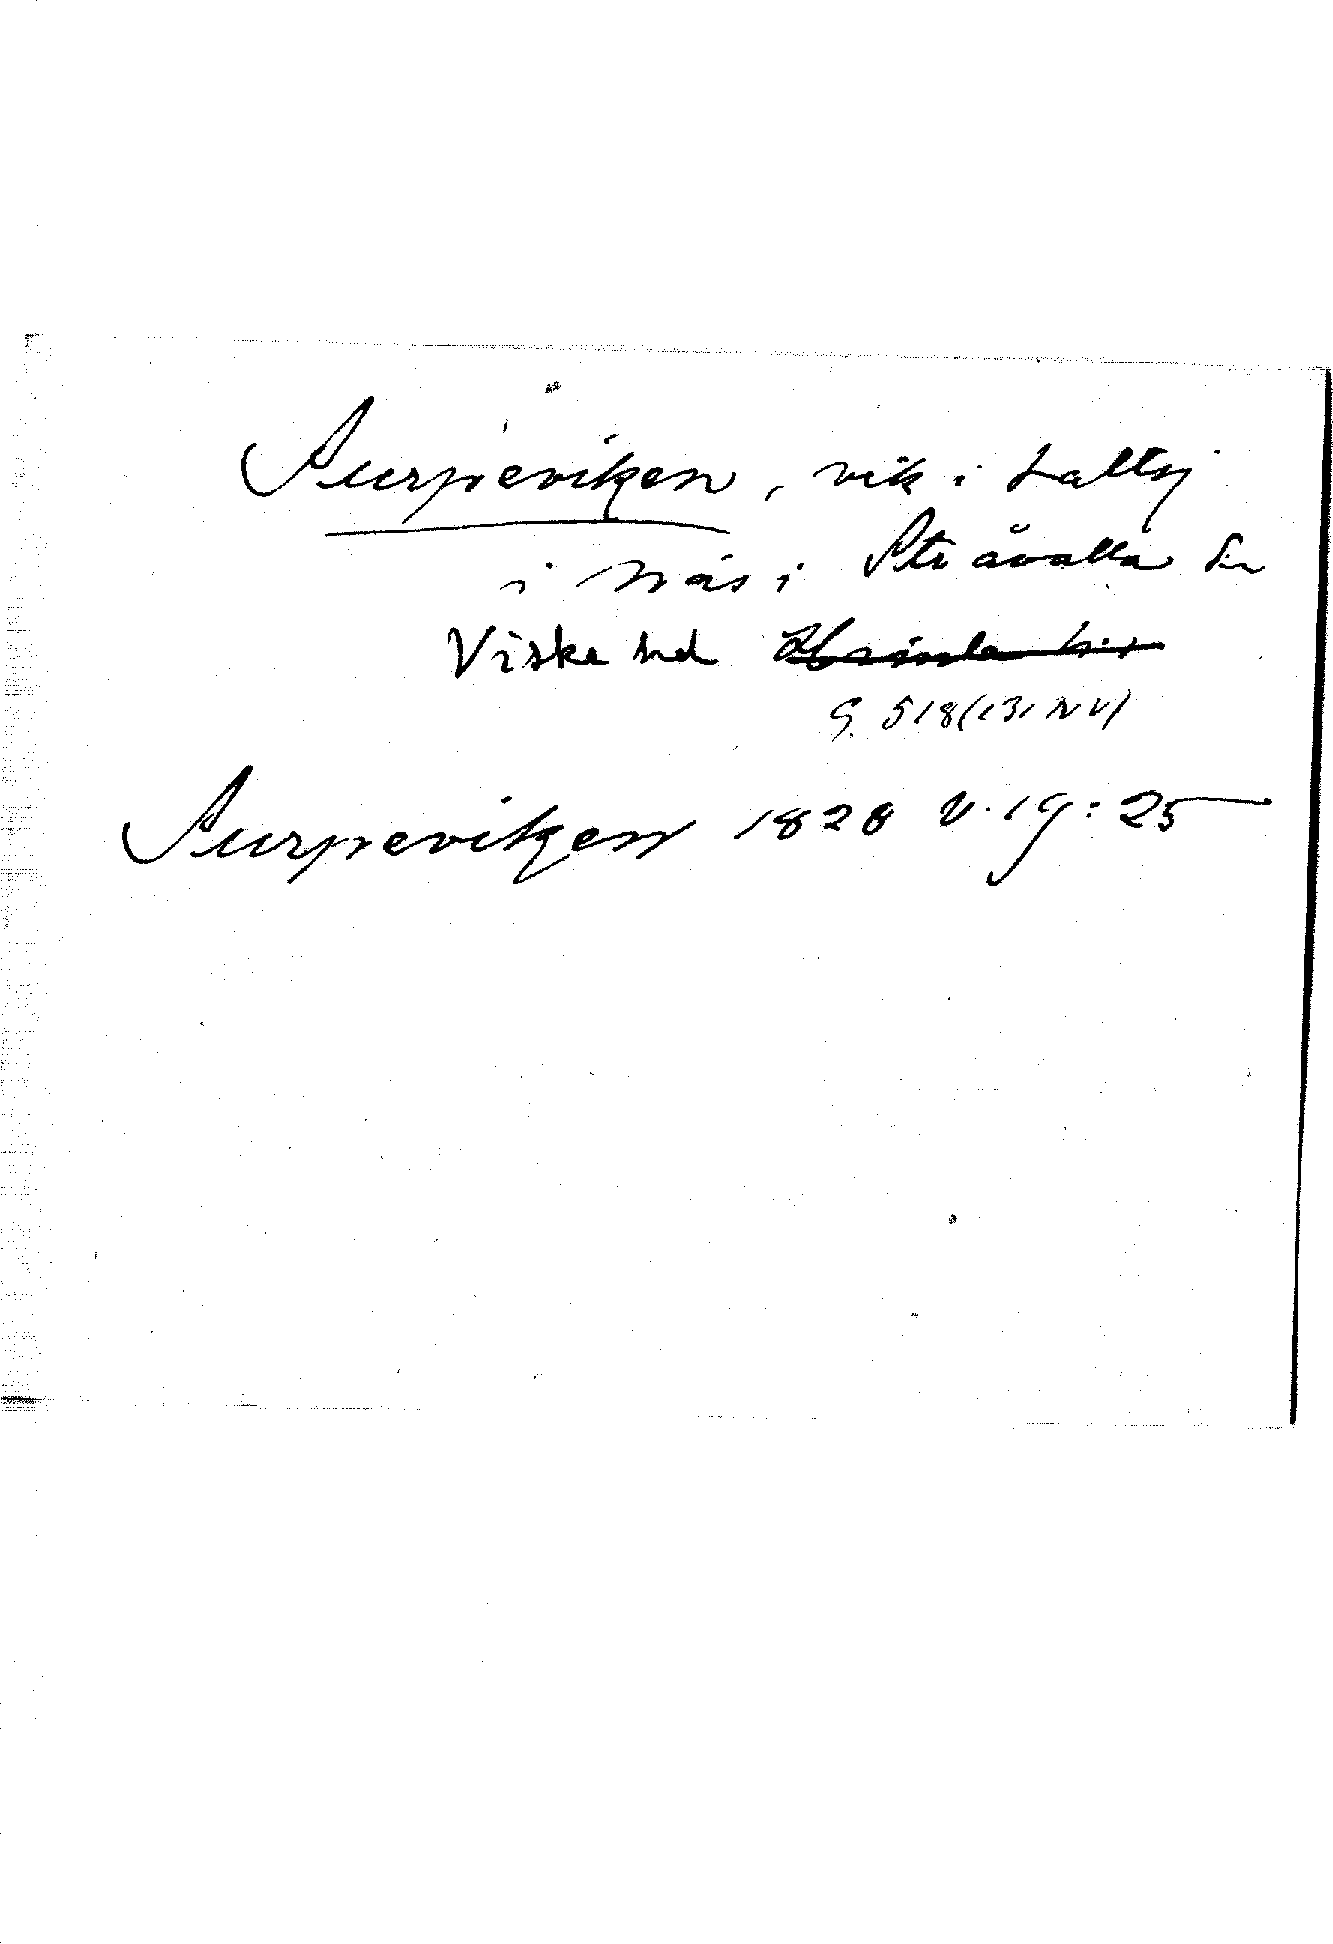 Surpeviken, vik i Saltsj
i Näs i Stråvalla sn
Viske hd
G. 518 (131 NV)
Surpeviken 1828 V.19:25